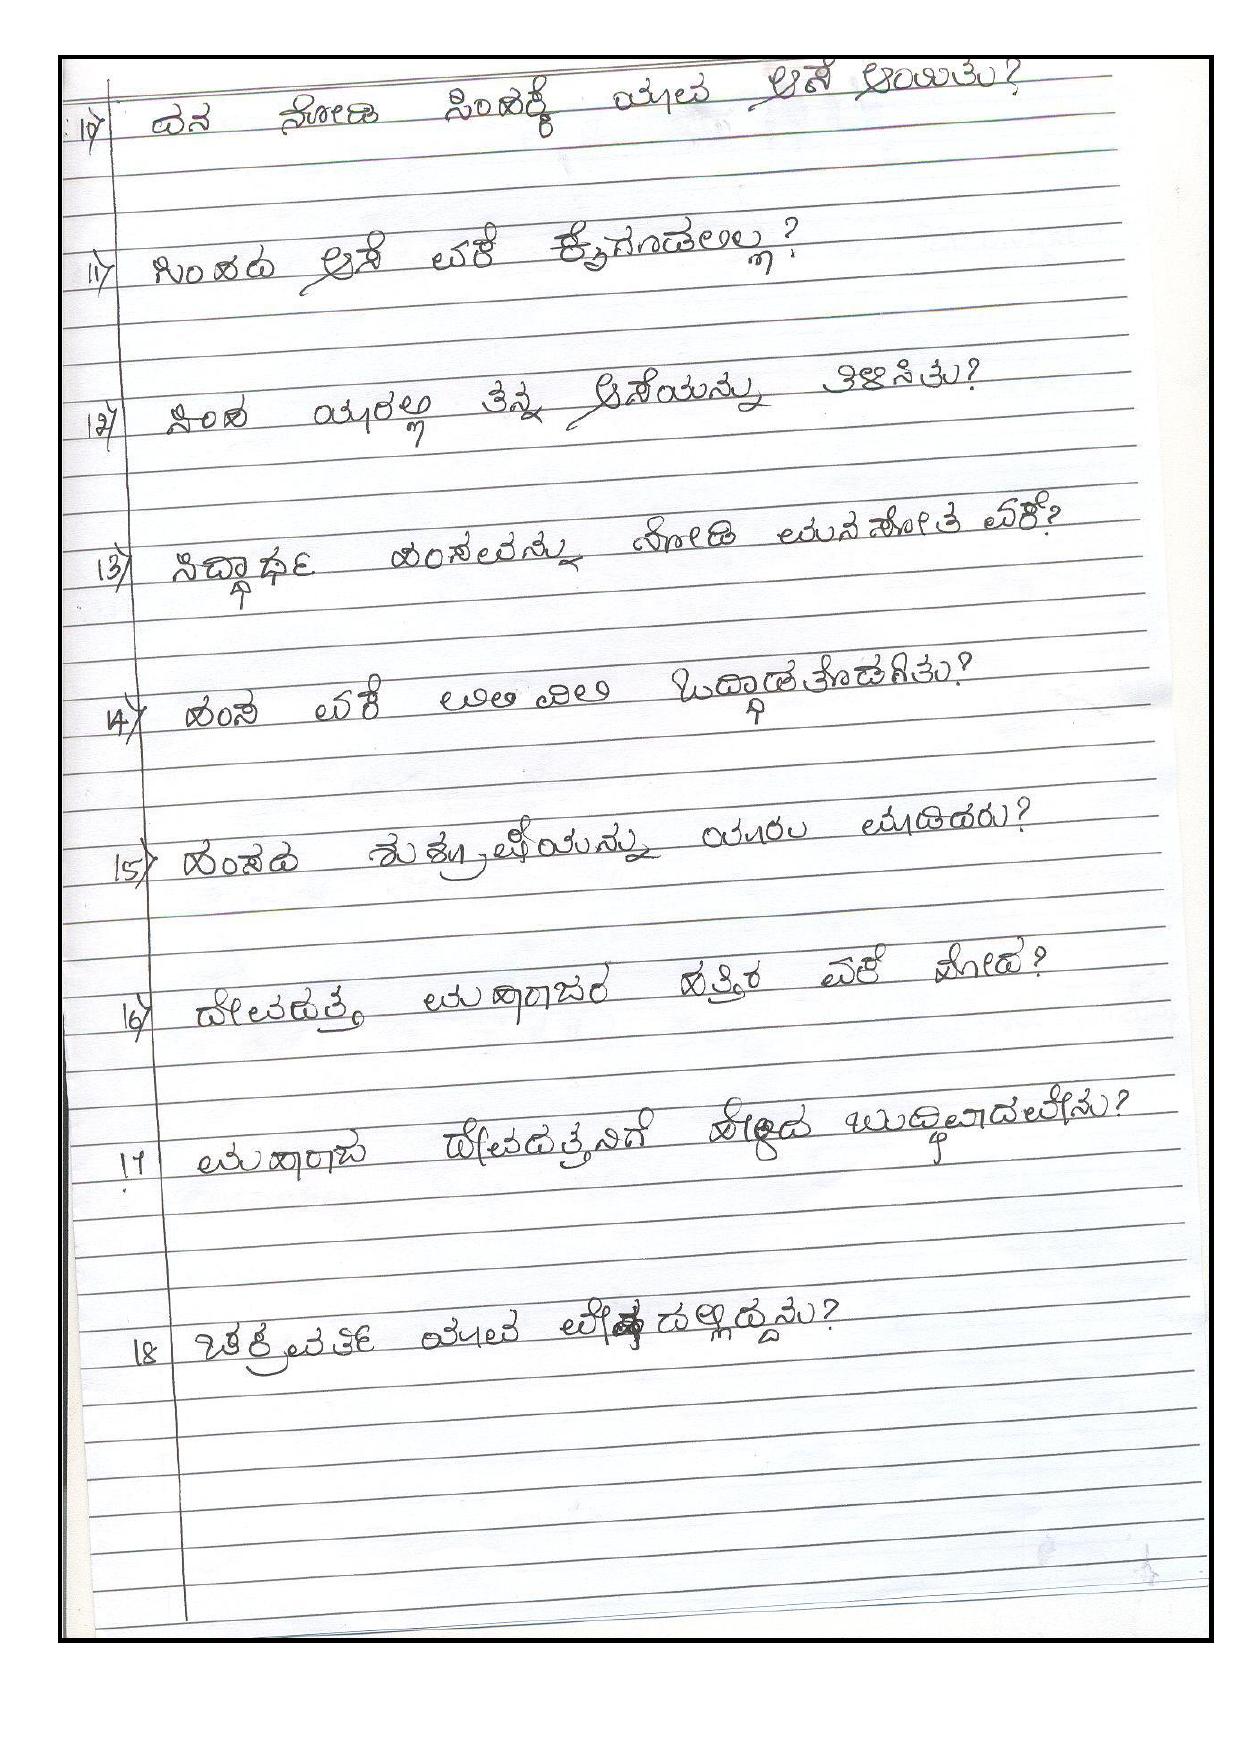 10) ದನ ನೋಡಿ ಸಿಂಹಕ್ಕೆ ಯಾವ ಆಸೆ ಆಯಿತು?
11) ಸಿಂಹದ ಆಸೆ ಏಕೆ ಕೈಗೂಡಲಿಲ್ಲ?
12) ಸಿಂಹ ಯಾರಲ್ಲಿ ತನ್ನ ಆಸೆಯನ್ನು ತಿಳಿಸಿತು?
13) ಸಿದ್ಧಾರ್ಥ ಹಂಸವನ್ನು ನೋಡಿ ಮನಸೋತ ಏಕೆ?
14) ಹಂಸ ಏಕೆ ಲಿಲಿ ವಿಲಿ ಒದ್ದಾಡತೊಡಗಿತು?
15) ಹಂಸದ ಶುಶ್ರೂಷೆಯನ್ನು ಯಾರು ಮಾಡಿದರು?
16) ದೇವದತ್ತ ಮಹಾರಾಜರ ಹತ್ತಿರ ಏಕೆ ಹೋದ?
17 ಮಹಾರಾಜ ದೇವದತ್ತನಿಗೆ ಹೇಳಿದ ಬುದ್ಧಿವಾದವೇನು?
18 ಚಕ್ರವರ್ತಿ ಯಾವ ವೇಷದಲ್ಲಿದ್ದನು?